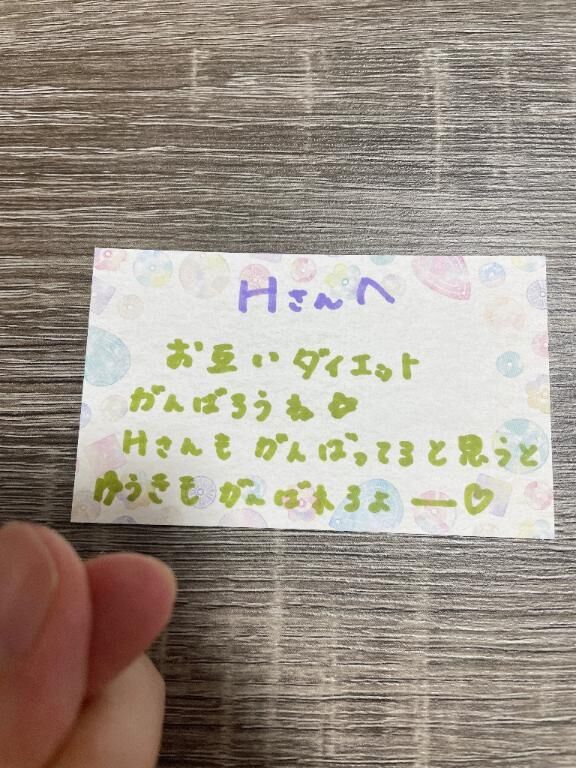 Hさんへ
お互いダイエット
がんばろうね♡
Hさんもがんばってると思うと
ゆうきもがんばれるよー♡